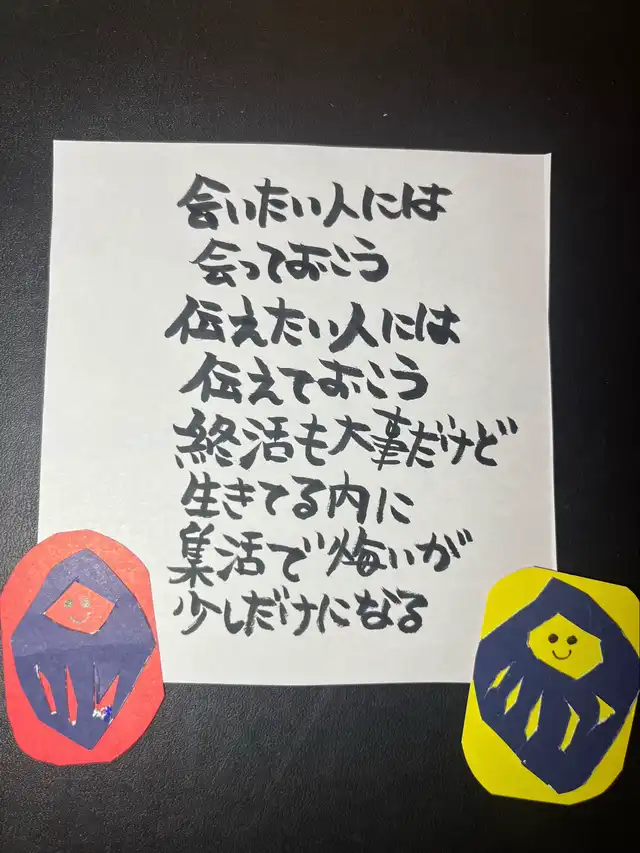 会いたい人には
会っておこう
伝えたい人には
伝えておこう
終活も大事だけど
生きてる内に
集活で悔いが
少しだけになる